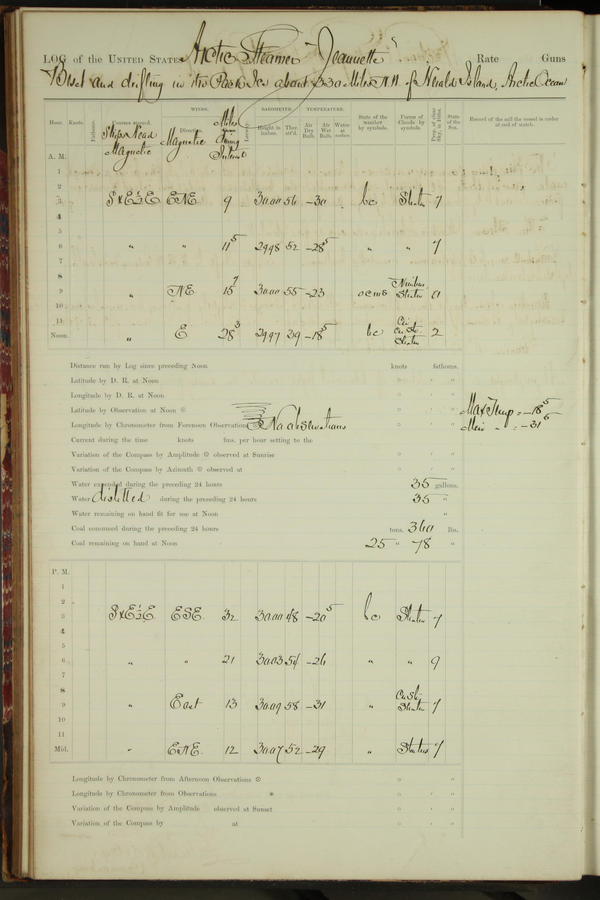 LOG of the UNITED STATES Arctic Steamer "Jeannette" Rate Guns
Beset and drifting in the Pack Ice about 330 Miles N.W. of Herald Island, Arctic Ocean
WINDS. BAROMETER. TEMPERATURE.
Hour. Knots. Fathoms. Courses steered. Direction. Miles Leeway. Height in inches. Ther. att'd. Air Dry Bulb. Air Wet Bulb. Water at surface. State of the weather by symbols. Forms of Clouds by symbols. Prop. of clear Sky, in 10ths. State of the Sea. Record of the sail the vessel is under at end of watch.
Ships Head Magnetic Magnetic
A. M.
1
2
3 SxE½E ENE 9 30.00 56 -30 bc Stratus 7
4
5
6 " " 11⁵ 29.98 52 -28⁵ " " 7
7
8
9 " NE 15⁷ 30.00 55 -23 ocms Nimbus Stratus 0
10
11
Noon. " E 28³ 29.97 29 -18⁵ bc Cir Cu. St. Stratus 2
Distance run by Log since preceding Noon knots fathoms.
Latitude by D. R. at Noon ° ' "
Longitude by D. R. at Noon ° ' "
Latitude by Observation at Noon ☉ ° ' " Max Temp = -18⁵
Longitude by Chronometer from Forenoon Observations No observations ° ' " Min " = -31⁵
Current during the time knots fms. per hour setting to the
Variation of the Compass by Amplitude ☉ observed at Sunrise ° ' "
Variation of the Compass by Azimuth ☉ observed at ° ' "
Water expended during the preceding 24 hours 35 gallons.
Water distilled during the preceding 24 hours 35 "
Water remaining on hand fit for use at Noon "
Coal consumed during the preceding 24 hours tons. 360 lbs.
Coal remaining on hand at Noon 25 " 78 "
P. M.
1
2
3 SxE½E ESE 32 30.00 48 -20⁵ bc Stratus 7
4
5
6 " " 21 30.03 54 -26 " " 9
7
8
9 " East 13 30.09 58 -31 " Cu. St. Stratus 7
10
11
Mid. " ENE. 12 30.07 52 -29 " Stratus 7
Longitude by Chronometer from Afternoon Observations ☉ ° ' "
Longitude by Chronometer from Observations * ° ' "
Variation of the Compass by Amplitude observed at Sunset ° ' "
Variation of the Compass by at ° ' "